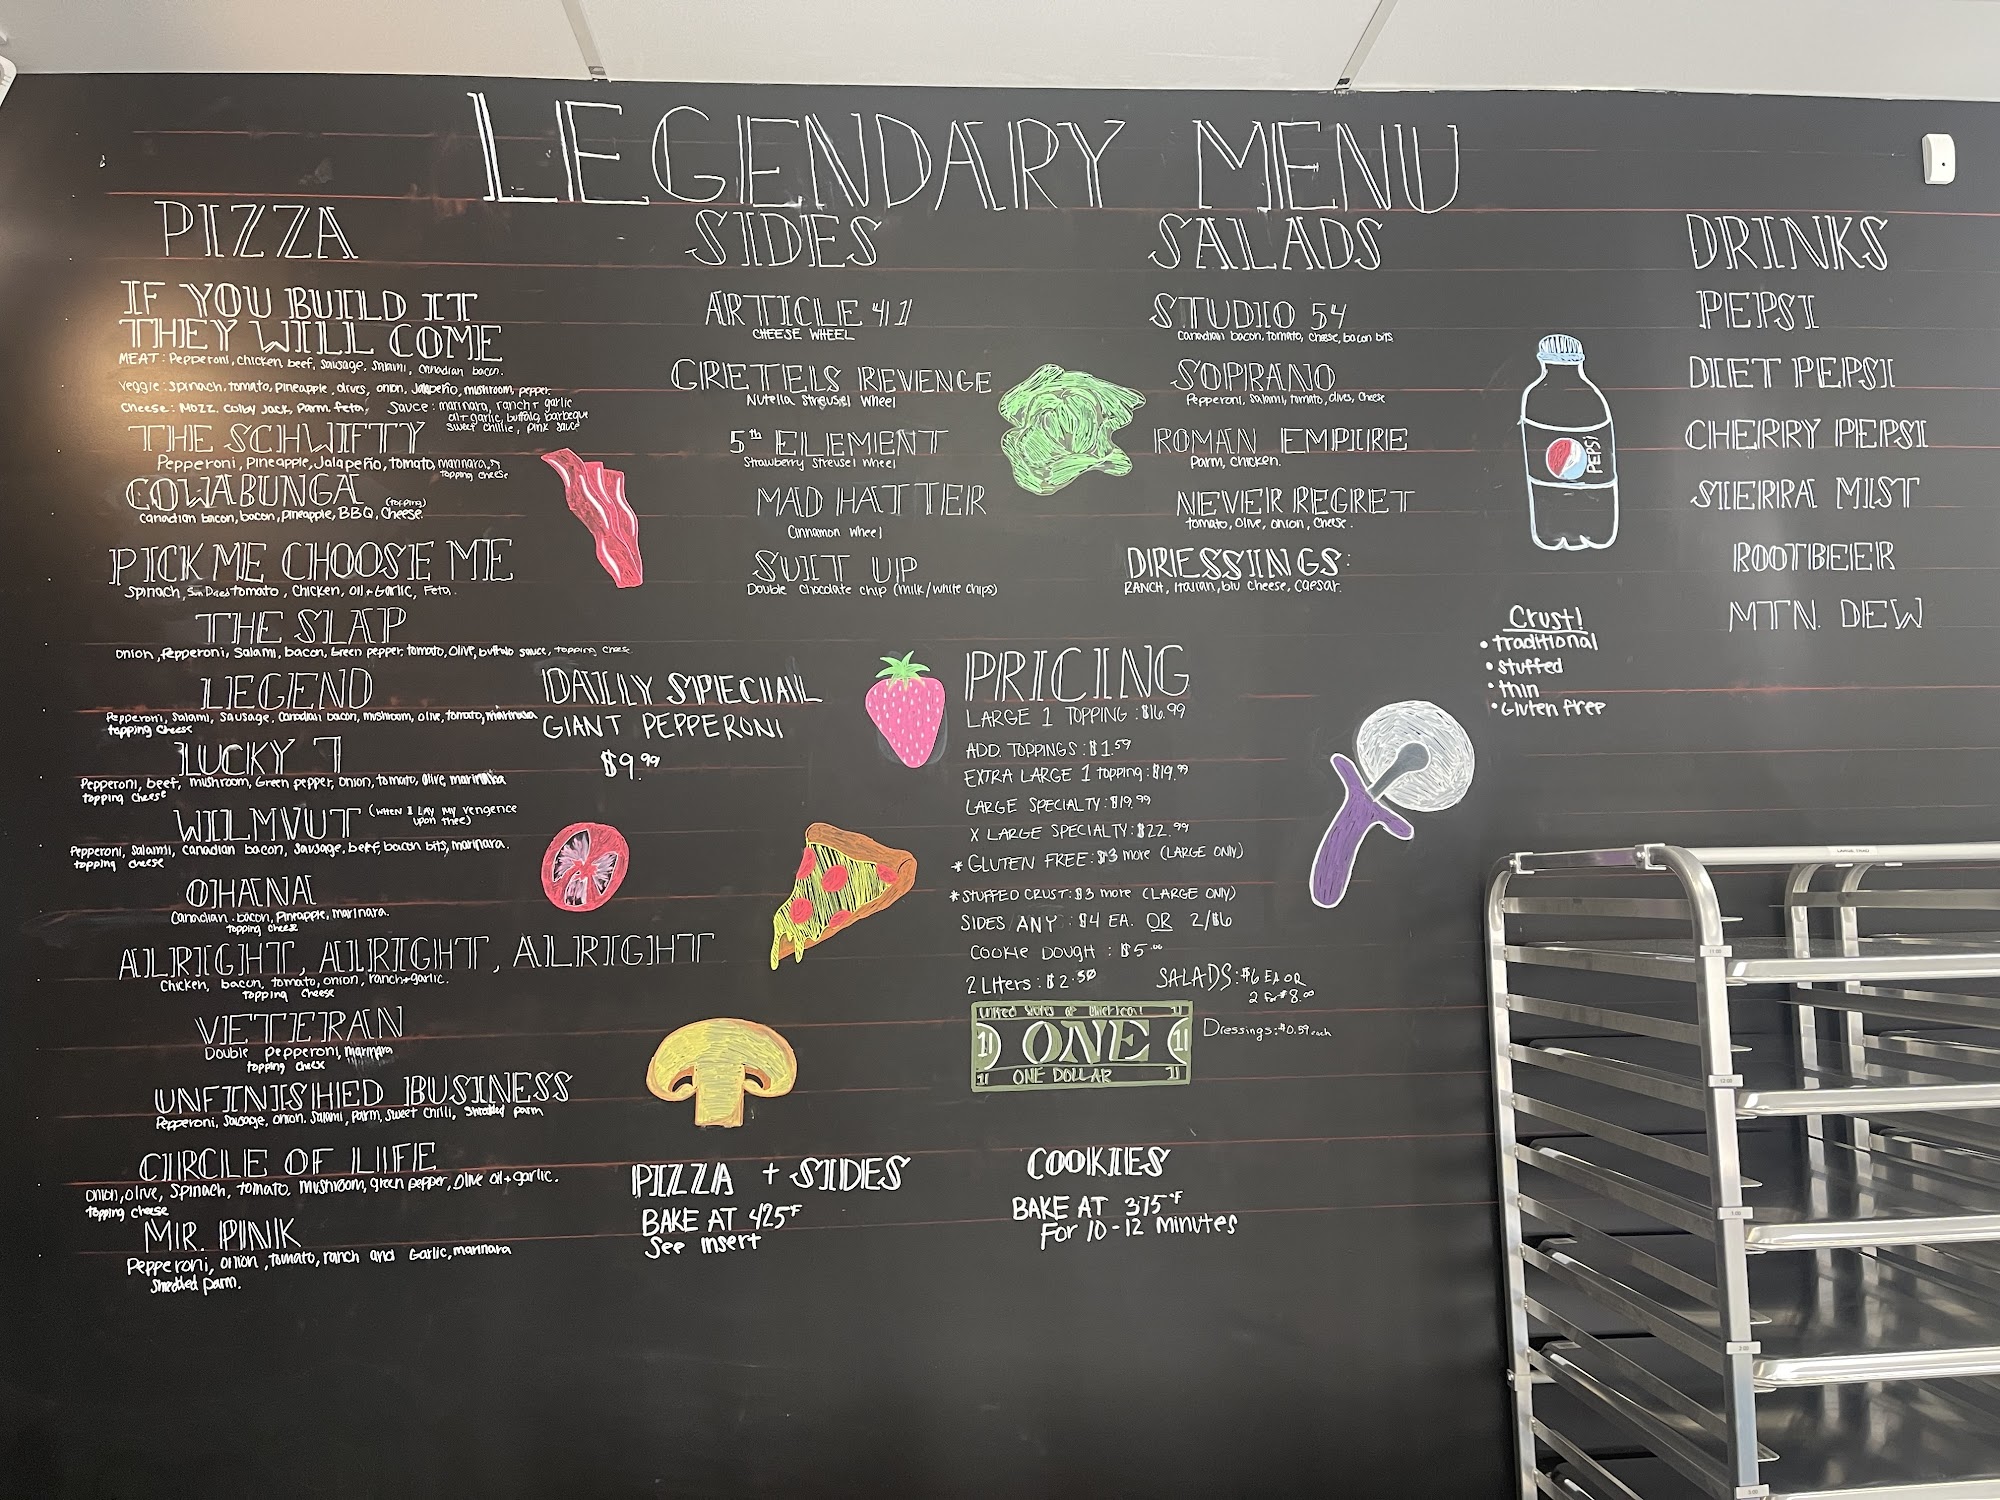 LEGENDARY MENU
PIZZA
IF YOU BUILD IT
THEY WILL COME
MEAT: Pepperoni, chicken, beef, sausage, salami, canadian bacon.
Veggie: spinach, tomato, pineapple, olives, onion, Jalapeño, mushroom, pepper.
Cheese: Mozz. Colby Jack, Parm. feta, Sauce: marinara, ranch + garlic
oil + garlic, buffalo, barbeque
sweet chillie, pink sauce
THE SCHWIFTY
Pepperoni, Pineapple, Jalapeño, tomato, marinara,
topping cheese
COWABUNGA (topping)
Canadian bacon, bacon, pineapple, BBQ, Cheese.
PICK ME CHOOSE ME
Spinach, Sun Dried tomato, Chicken, Oil + Garlic, Feta.
THE SLAP
Onion, Pepperoni, Salami, bacon, Green pepper, tomato, Olive, buffalo sauce, topping cheese
LEGEND
Pepperoni, Salami, Sausage, Canadian bacon, mushroom, olive, tomato, marinara
topping Cheese
LUCKY 7
Pepperoni, beef, mushroom, Green pepper, Onion, tomato, olive, marinara
topping Cheese
WILMVUT (WHEN I LAY MY vengence
upon thee)
Pepperoni, Salami, Canadian bacon, Sausage, beef, bacon bits, marinara.
topping cheese
OHANA
Canadian bacon, Pineapple, marinara.
topping cheese
ALRIGHT, ALRIGHT, ALRIGHT
Chicken, bacon, tomato, onion, ranch + garlic.
topping Cheese
VETERAN
Double pepperoni, marinara
topping cheese
UNFINISHED BUSINESS
Pepperoni, Sausage, onion, Salami, Parm, Sweet Chilli, Shredded parm
CIRCLE OF LIFE
Onion, olive, Spinach, tomato, mushroom, green pepper, Olive oil + garlic.
topping Cheese
MR. PINK
Pepperoni, onion, tomato, ranch and Garlic, marinara
Shredded parm.
SIDES
ARTICLE 41
CHEESE WHEEL
GRETELS REVENGE
Nutella Streusel Wheel
5th ELEMENT
Strawberry Streusel Wheel
MAD HATTER
Cinnamon Wheel
SUIT UP
Double Chocolate chip (milk/white chips)
DAILY SPECIAL
GIANT PEPPERONI
$9.99
SALADS
STUDIO 54
Canadian bacon, tomato, cheese, bacon bits
SOPRANO
Pepperoni, Salami, tomato, olives, Cheese
ROMAN EMPIRE
Parm, Chicken.
NEVER REGRET
tomato, Olive, onion, Cheese.
DRESSINGS:
RANCH, Italian, blu Cheese, Caesar.
PRICING
LARGE 1 TOPPING: $16.99
ADD. TOPPINGS: $1.59
EXTRA LARGE 1 topping: $19.99
LARGE SPECIALTY: $19.99
X LARGE SPECIALTY: $22.99
* GLUTEN FREE: $3 more (LARGE ONLY)
* STUFFED CRUST: $3 more (LARGE ONLY)
SIDES/ANY: $4 EA. OR 2/$6
COOKIE DOUGH: $5.00
2 Liters: $2.50
SALADS: $6 EA OR
2 for $8.00
Dressings: $0.59 each
ONE
1 1
ONE DOLLAR
DRINKS
PEPSI
DIET PEPSI
CHERRY PEPSI
SIERRA MIST
ROOTBEER
MTN. DEW
PEPSI
Crust!
• traditional
• Stuffed
• thin
• Gluten free
PIZZA + SIDES
BAKE AT 425°F
See insert
COOKIES
BAKE AT 375°F
For 10-12 minutes